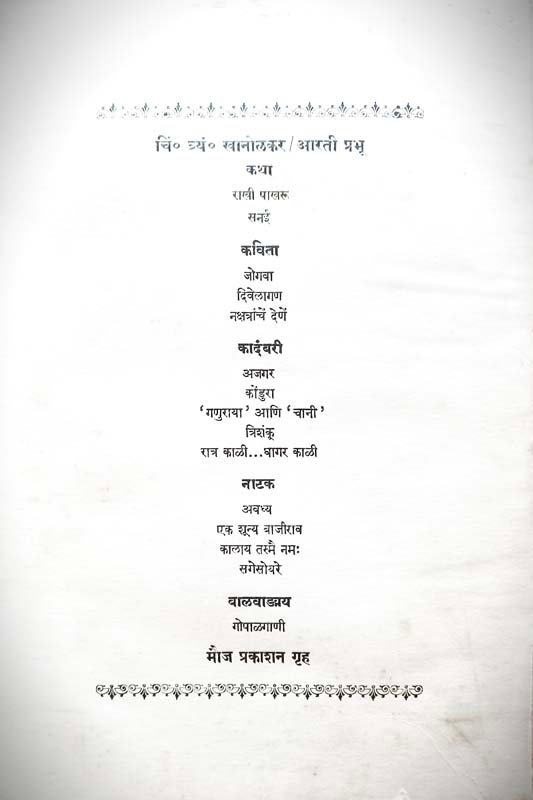 चिं० त्र्यं० खानोलकर/आरती प्रभू
कथा
राखी पाखरू
सनई
कविता
जोगवा
दिवेलागण
नक्षत्रांचें देणें
कादंबरी
अजगर
कोंडुरा
‘गणुराया’ आणि ‘चानी’
त्रिशंकू
रात्र काळी...घागर काळी
नाटक
अवध्य
एक शून्य बाजीराव
कालाय तस्मै नमः
सगेसोयरे
बालवाङ्मय
गोपाळगाणी
मौज प्रकाशन गृह